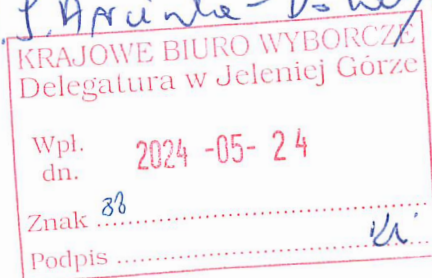 KRAJOWE BIURO WYBORCZE
Delegatura w Jeleniej Górze
Wpł.
dn. 2024 -05- 24
Znak 38
Podpis